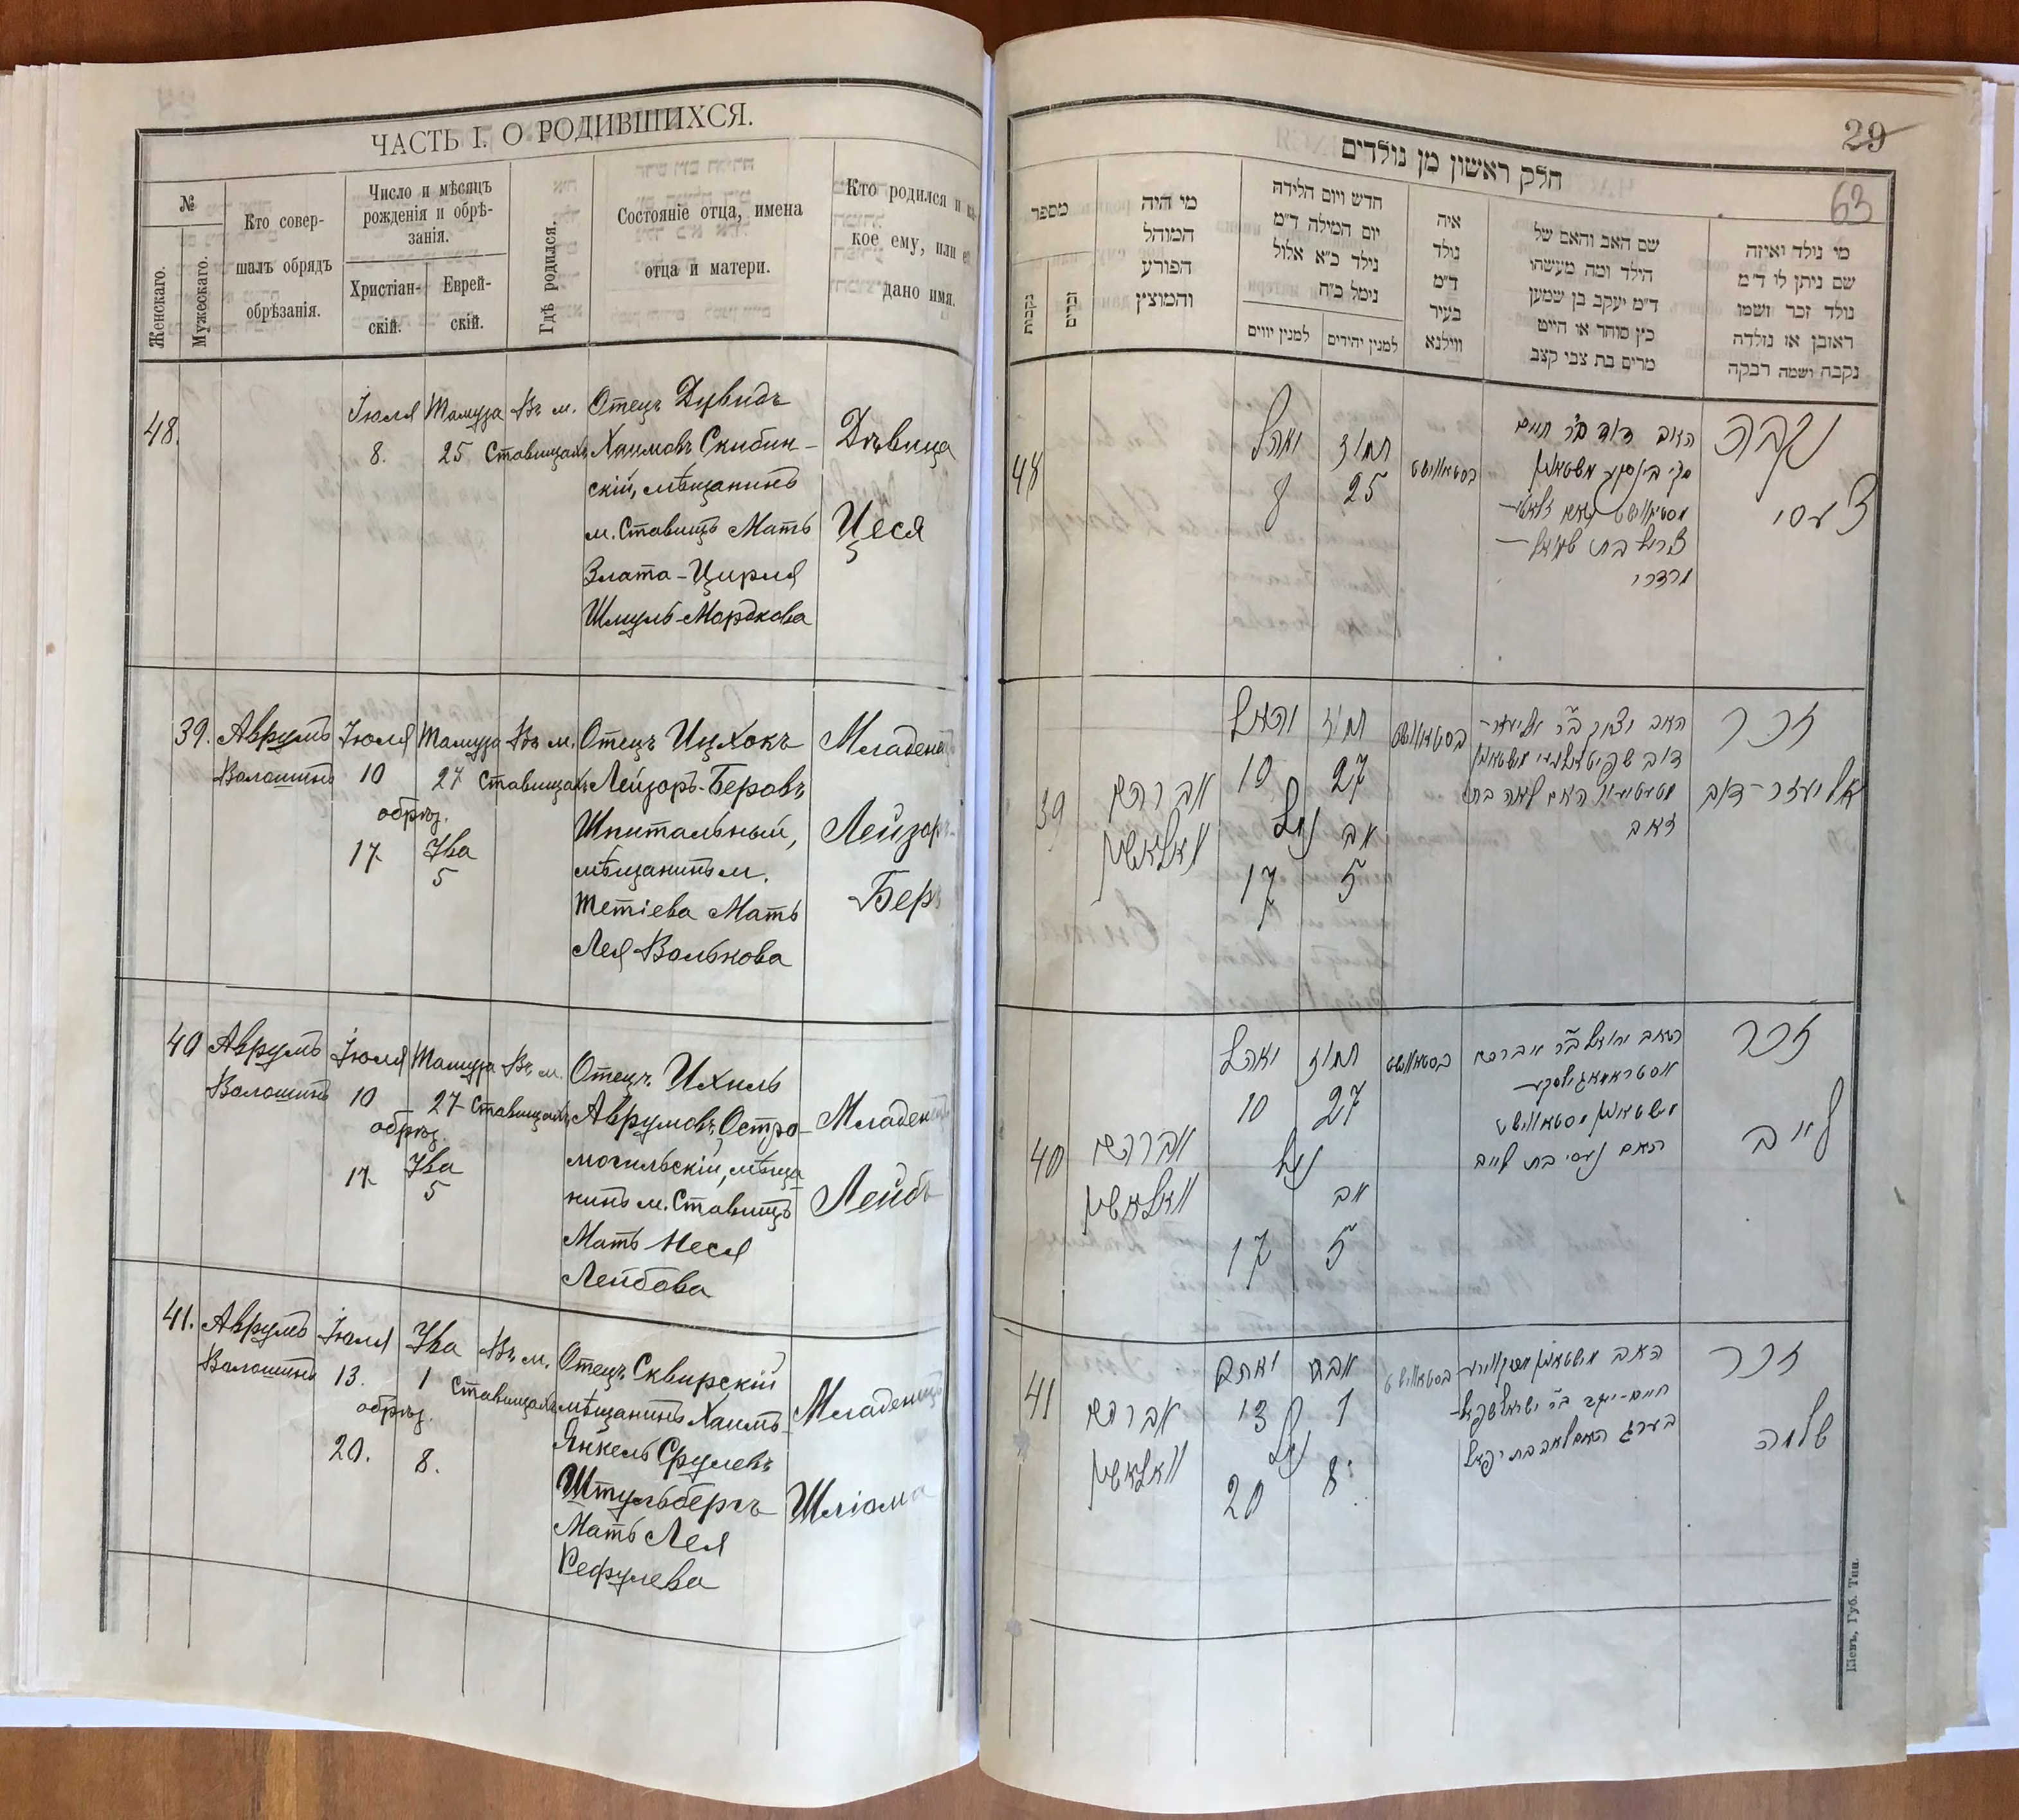 ЧАСТЬ I. О РОДИВШИХСЯ.
№
Женскаго.
Мужескаго.
Кто совер-
шалъ обрядъ
обрѣзанія.
Число и мѣсяцъ
рожденія и обрѣ-
занія.
Христіан-
скій.
Еврей-
скій.
Гдѣ родился.
Состояніе отца, имена
отца и матери.
Кто родился и
кое ему, или
дано имя.
48.
Іюля
8.
Тамуза
25
Въ м.
Ставищахъ
Отецъ Дувидъ
Хаимовъ Скибин-
скій, мѣщанинъ
м. Ставищъ Мать
Злата-Цирля
Шмуль-Мордкова
Дѣвица
Цеся
39.
Аврумъ
Волошинъ
Іюля
10
обрѣз.
17.
Тамуза
27
Ува
5
Въ м.
Ставищахъ
Отецъ Ицхокъ
Лейзоръ-Беровъ
Шпитальный,
мѣщанинъ м.
Тетіева Мать
Лея Волькова
Младенецъ
Лейзоръ-
Беръ
40
Аврумъ
Волошинъ
Іюля
10
обрѣз.
17.
Тамуза
27
Ува
5
Въ м.
Ставищахъ
Отецъ Ихиль
Аврумовъ Остро-
могильскій, мѣща-
нинъ м. Ставищъ
Мать Неся
Лейбова
Младенецъ
Лейбъ
41.
Аврумъ
Волошинъ
Іюля
13.
обрѣз.
20.
Ува
1
8.
Въ м.
Ставищахъ
Отецъ Сквирскій
мѣщанинъ Хаимъ-
Янкель Срулевъ
Штульбергъ
Мать Лея
Рефулева
Младенецъ
Шліома
29
63
חלק ראשון מן נולדים
מספר
נקבות
זכרים
מי היה
המוהל
הפורע
והמוצץ
חדש ויום הלידה
יום המילה ד"מ
נילד כ"א אלול
נימל כ"ח
למנין יווים
למנין יהידים
איה
נולד
ד"מ
בעיר
ווילנא
שם האב והאם של
הילד ומה מעשהו
ד"מ יעקב בן שמען
כ"ץ סוחר או חייט
מרים בת צבי קצב
מי נולד ואיזה
שם ניתן לו ד"מ
נולד זכר ושמו
ראובן או נולדה
נקבה ושמה רבקה
48
יואהל
8
תמוז
25
בסטאווישט
האב דוד ב"ר חיים
נקבה
צעסי
39
אברהם
וואלאשין
10
נימל
17
תמוז
27
אב
5
בסטאווישט
זכר
אליעזר-דוב
40
אברהם
וואלאשין
10
נימל
17
תמוז
27
אב
5
בסטאווישט
האם נעסי בת לייב
זכר
לייב
41
אברהם
וואלאשין
13
נימל
20
1
8
בסטאווישט
זכר
שלמה
Кіевъ, Губ. Тип.